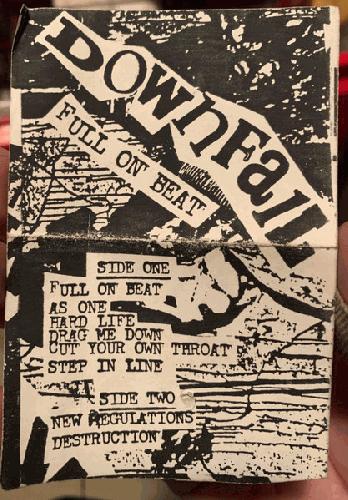 DOWNFall
FULL ON BEAT
SIDE ONE
FULL ON BEAT
AS ONE
HARD LIFE
DRAG ME DOWN
CUT YOUR OWN THROAT
STEP IN LINE
SIDE TWO
NEW REGULATIONS
DESTRUCTION